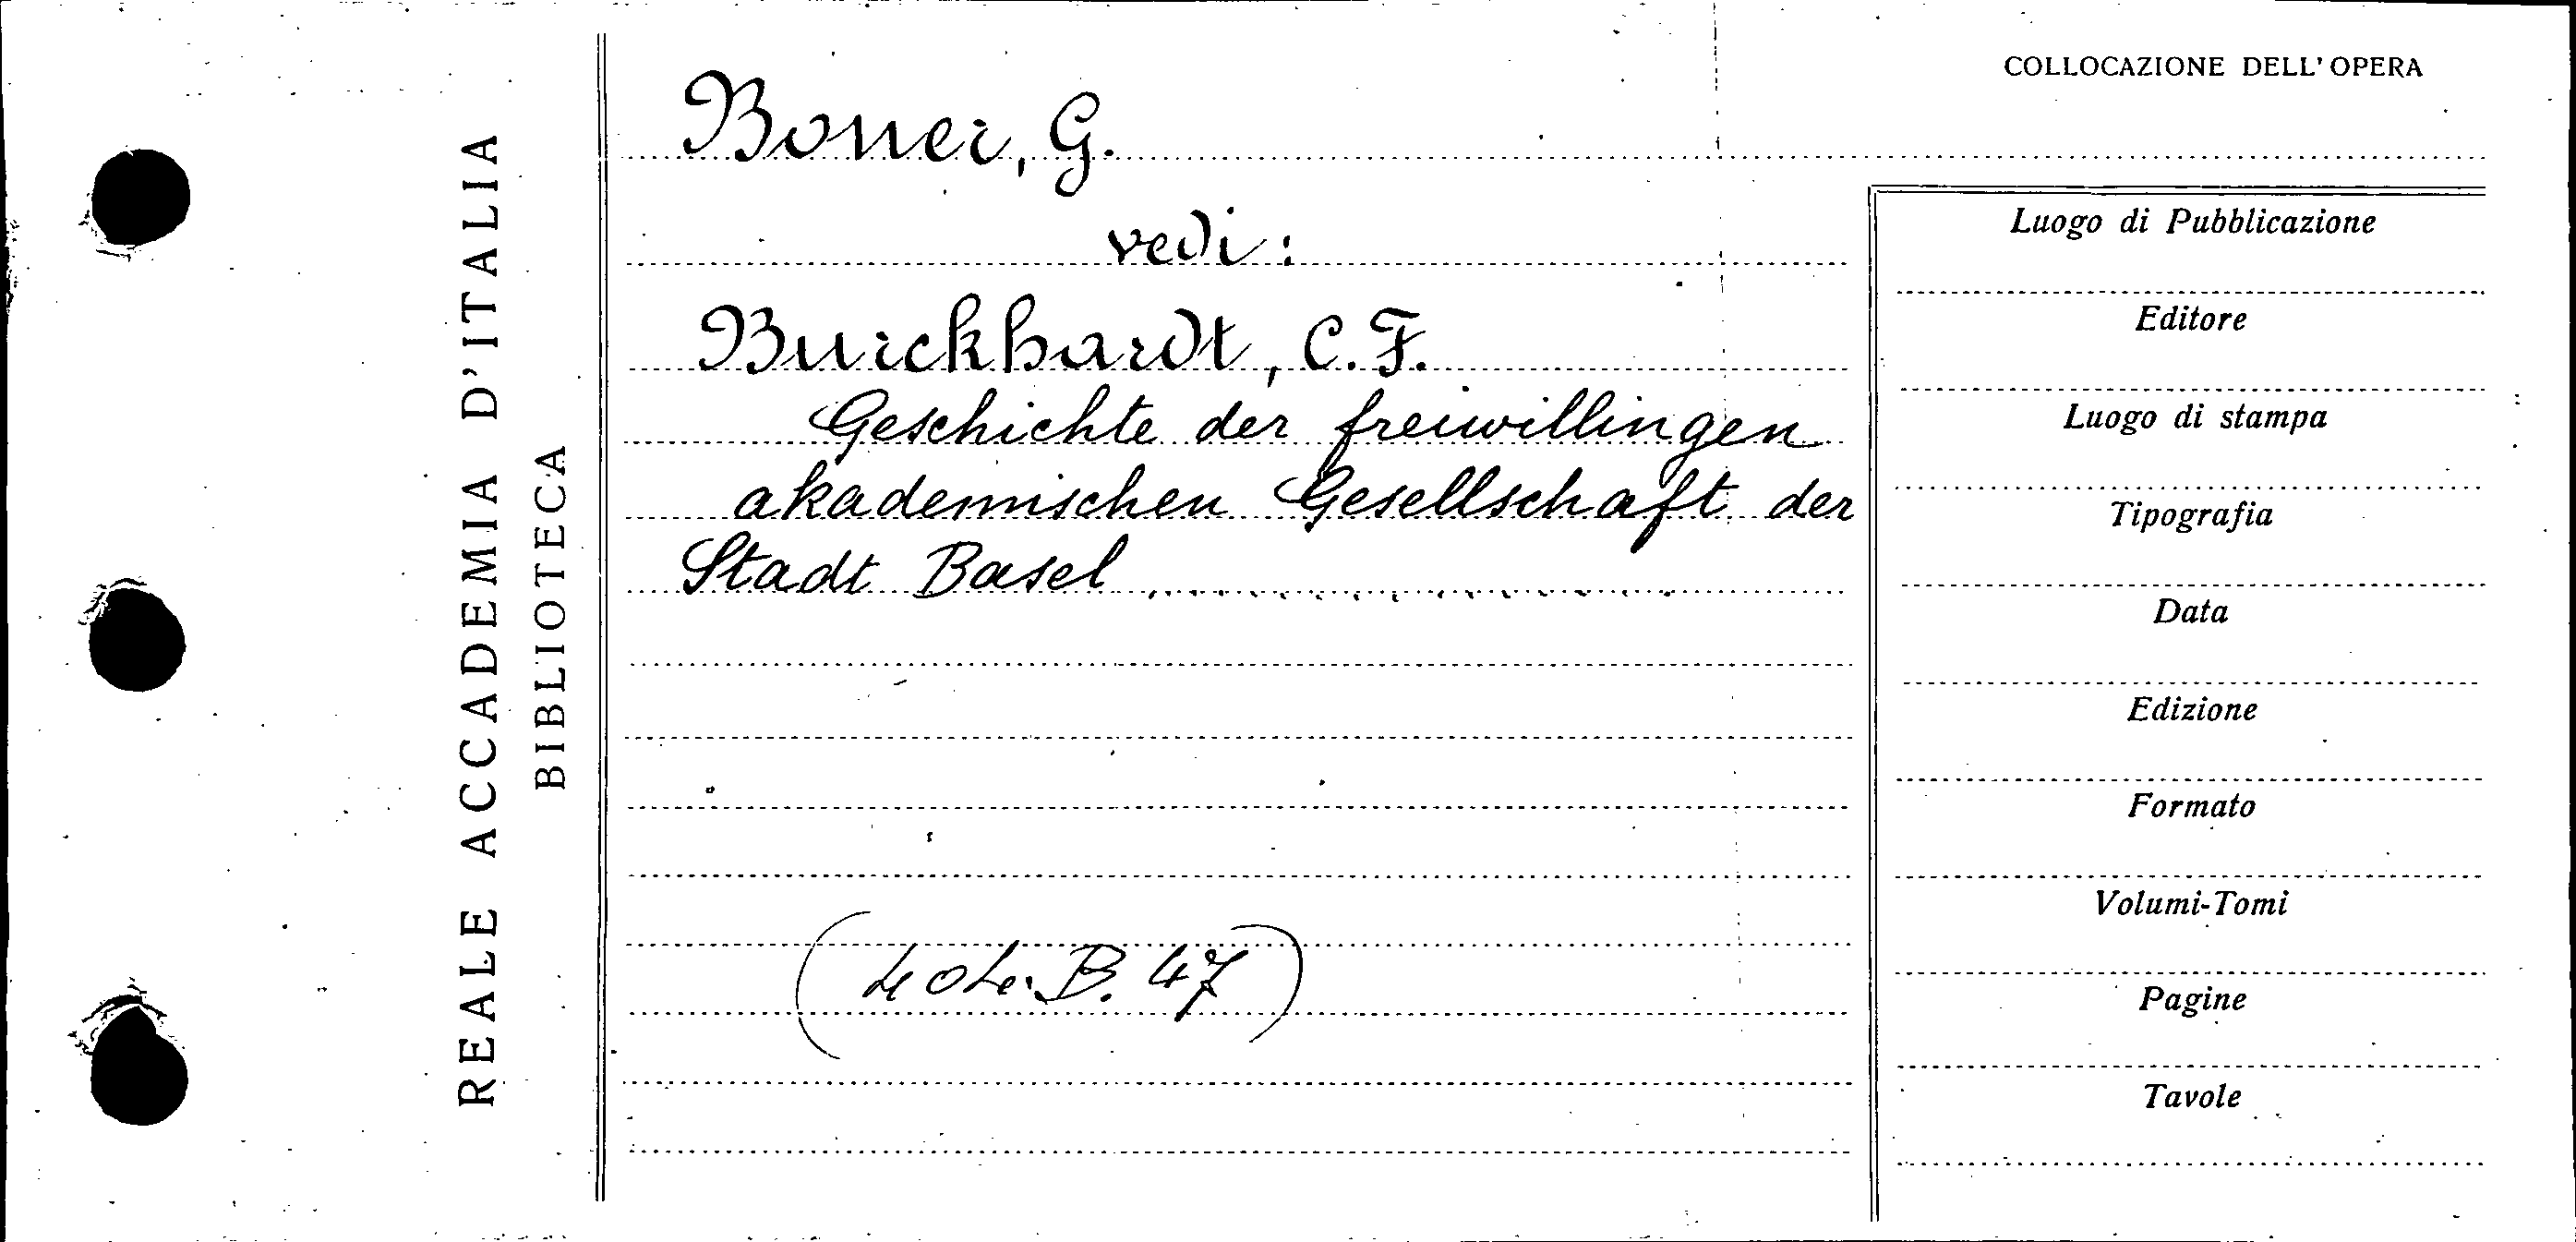 REALE ACCADEMIA D'ITALIA
BIBLIOTECA
COLLOCAZIONE DELL'OPERA
Boner, G.
vedi:
Burckhardt, C. F.
Geschichte der freiwillingen
akademischen Gesellschaft der
Stadt Basel
B. 47)
Luogo di Pubblicazione
Editore
Luogo di stampa
Tipografia
Data
Edizione
Formato
Volumi-Tomi
Pagine
Tavole